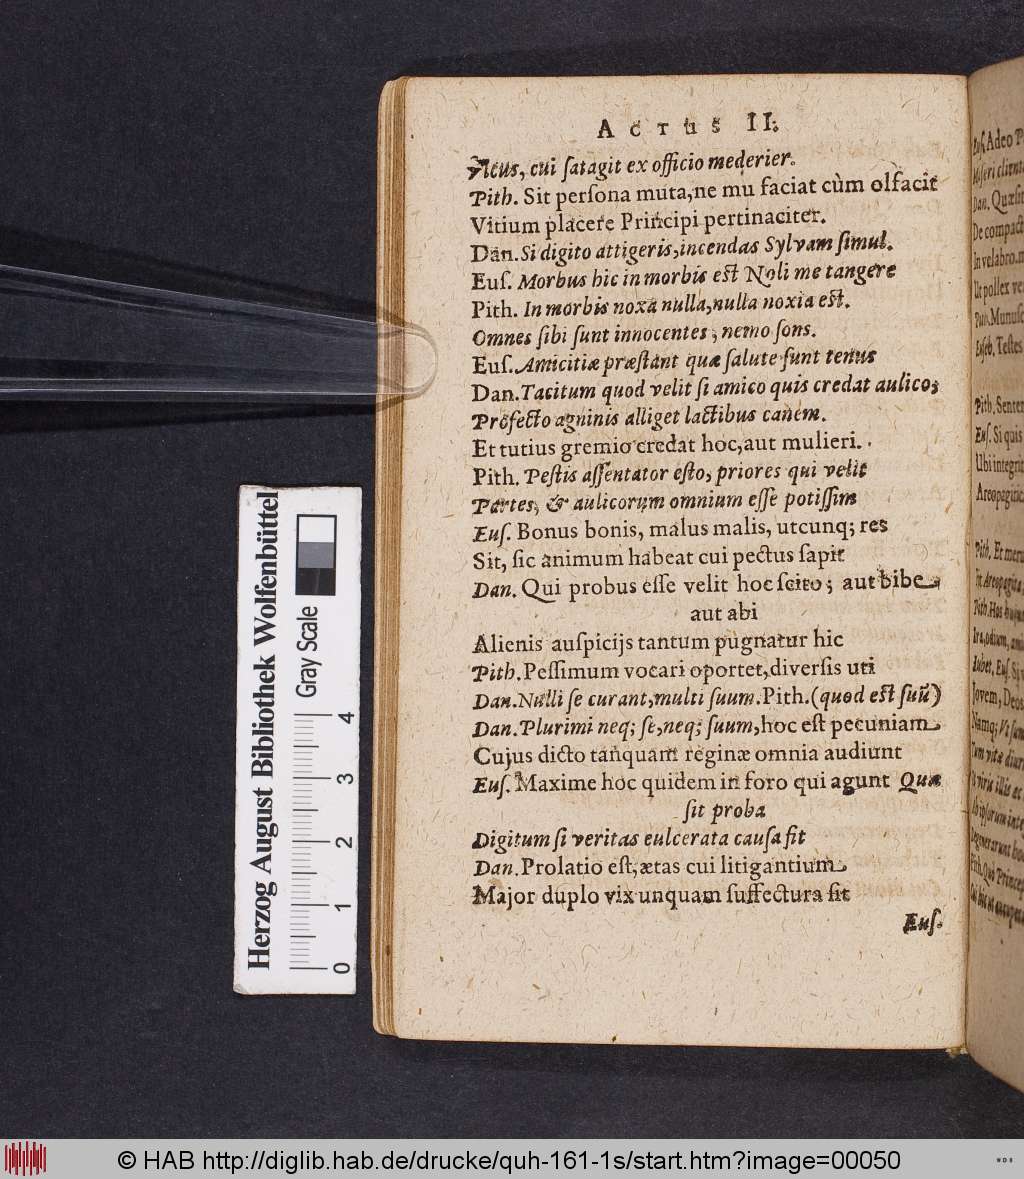 ACTUS II.
Vlcus, cui ſatagit ex officio mederier.
Pith. Sit perſona muta, ne mu faciat cùm olfacit
Vitium placere Principi pertinaciter.
Dan. Si digito attigeris, incendas Sylvam ſimul.
Euſ. Morbus hic in morbis est Noli me tangere
Pith. In morbis noxa nulla, nulla noxia est.
Omnes ſibi ſunt innocentes, nemo ſons.
Euſ. Amicitiæ præstant quæ ſalute ſunt tenus
Dan. Tacitum quod velit ſi amico quis credat aulico;
Profecto agninis alliget lactibus canem.
Et tutius gremio credat hoc, aut mulieri.
Pith. Peſtis aſſentator eſto, priores qui velit
Partes, & aulicorum omnium eſſe potiſſim
Euſ. Bonus bonis, malus malis, utcunq; res
Sit, ſic animum habeat cui pectus ſapit
Dan. Qui probus eſſe velit hoc ſcito; aut bibe
aut abi
Alienis auſpicijs tantum pugnatur hic
Pith. Peſſimum vocari oportet, diverſis uti
Dan. Nulli ſe curant, multi ſuum. Pith. (quod est ſuū)
Dan. Plurimi neq; ſe, neq; ſuum, hoc eſt pecuniam
Cujus dicto tanquam reginæ omnia audiunt
Euſ. Maxime hoc quidem in foro qui agunt Quæ
ſit proba
Digitum ſi veritas eulcerata cauſa fit
Dan. Prolatio eſt, ætas cui litigantium
Major duplo vix unquam ſuffectura ſit
Euſ.
Euſ. Adeo
Dan. Quæſit
De compact
In velabro
Ut pollex ve
Pith. Munuſc
Euſeb. Teſtes
Pith. Senten
Euſ. Si quis
Ubi integrit
Areopagitic
Pith. Et meru
Areopagita
Pith. Hos
Ira, odium, am
Jubet, Euſ. Si
Jovem, Deos
Namq; Vt ſan
tum vitæ diur
viris illis ac
Pith. Quo Princep
Herzog August Bibliothek Wolfenbüttel
Gray Scale
0 1 2 3 4
© HAB http://diglib.hab.de/drucke/quh-161-1s/start.htm?image=00050